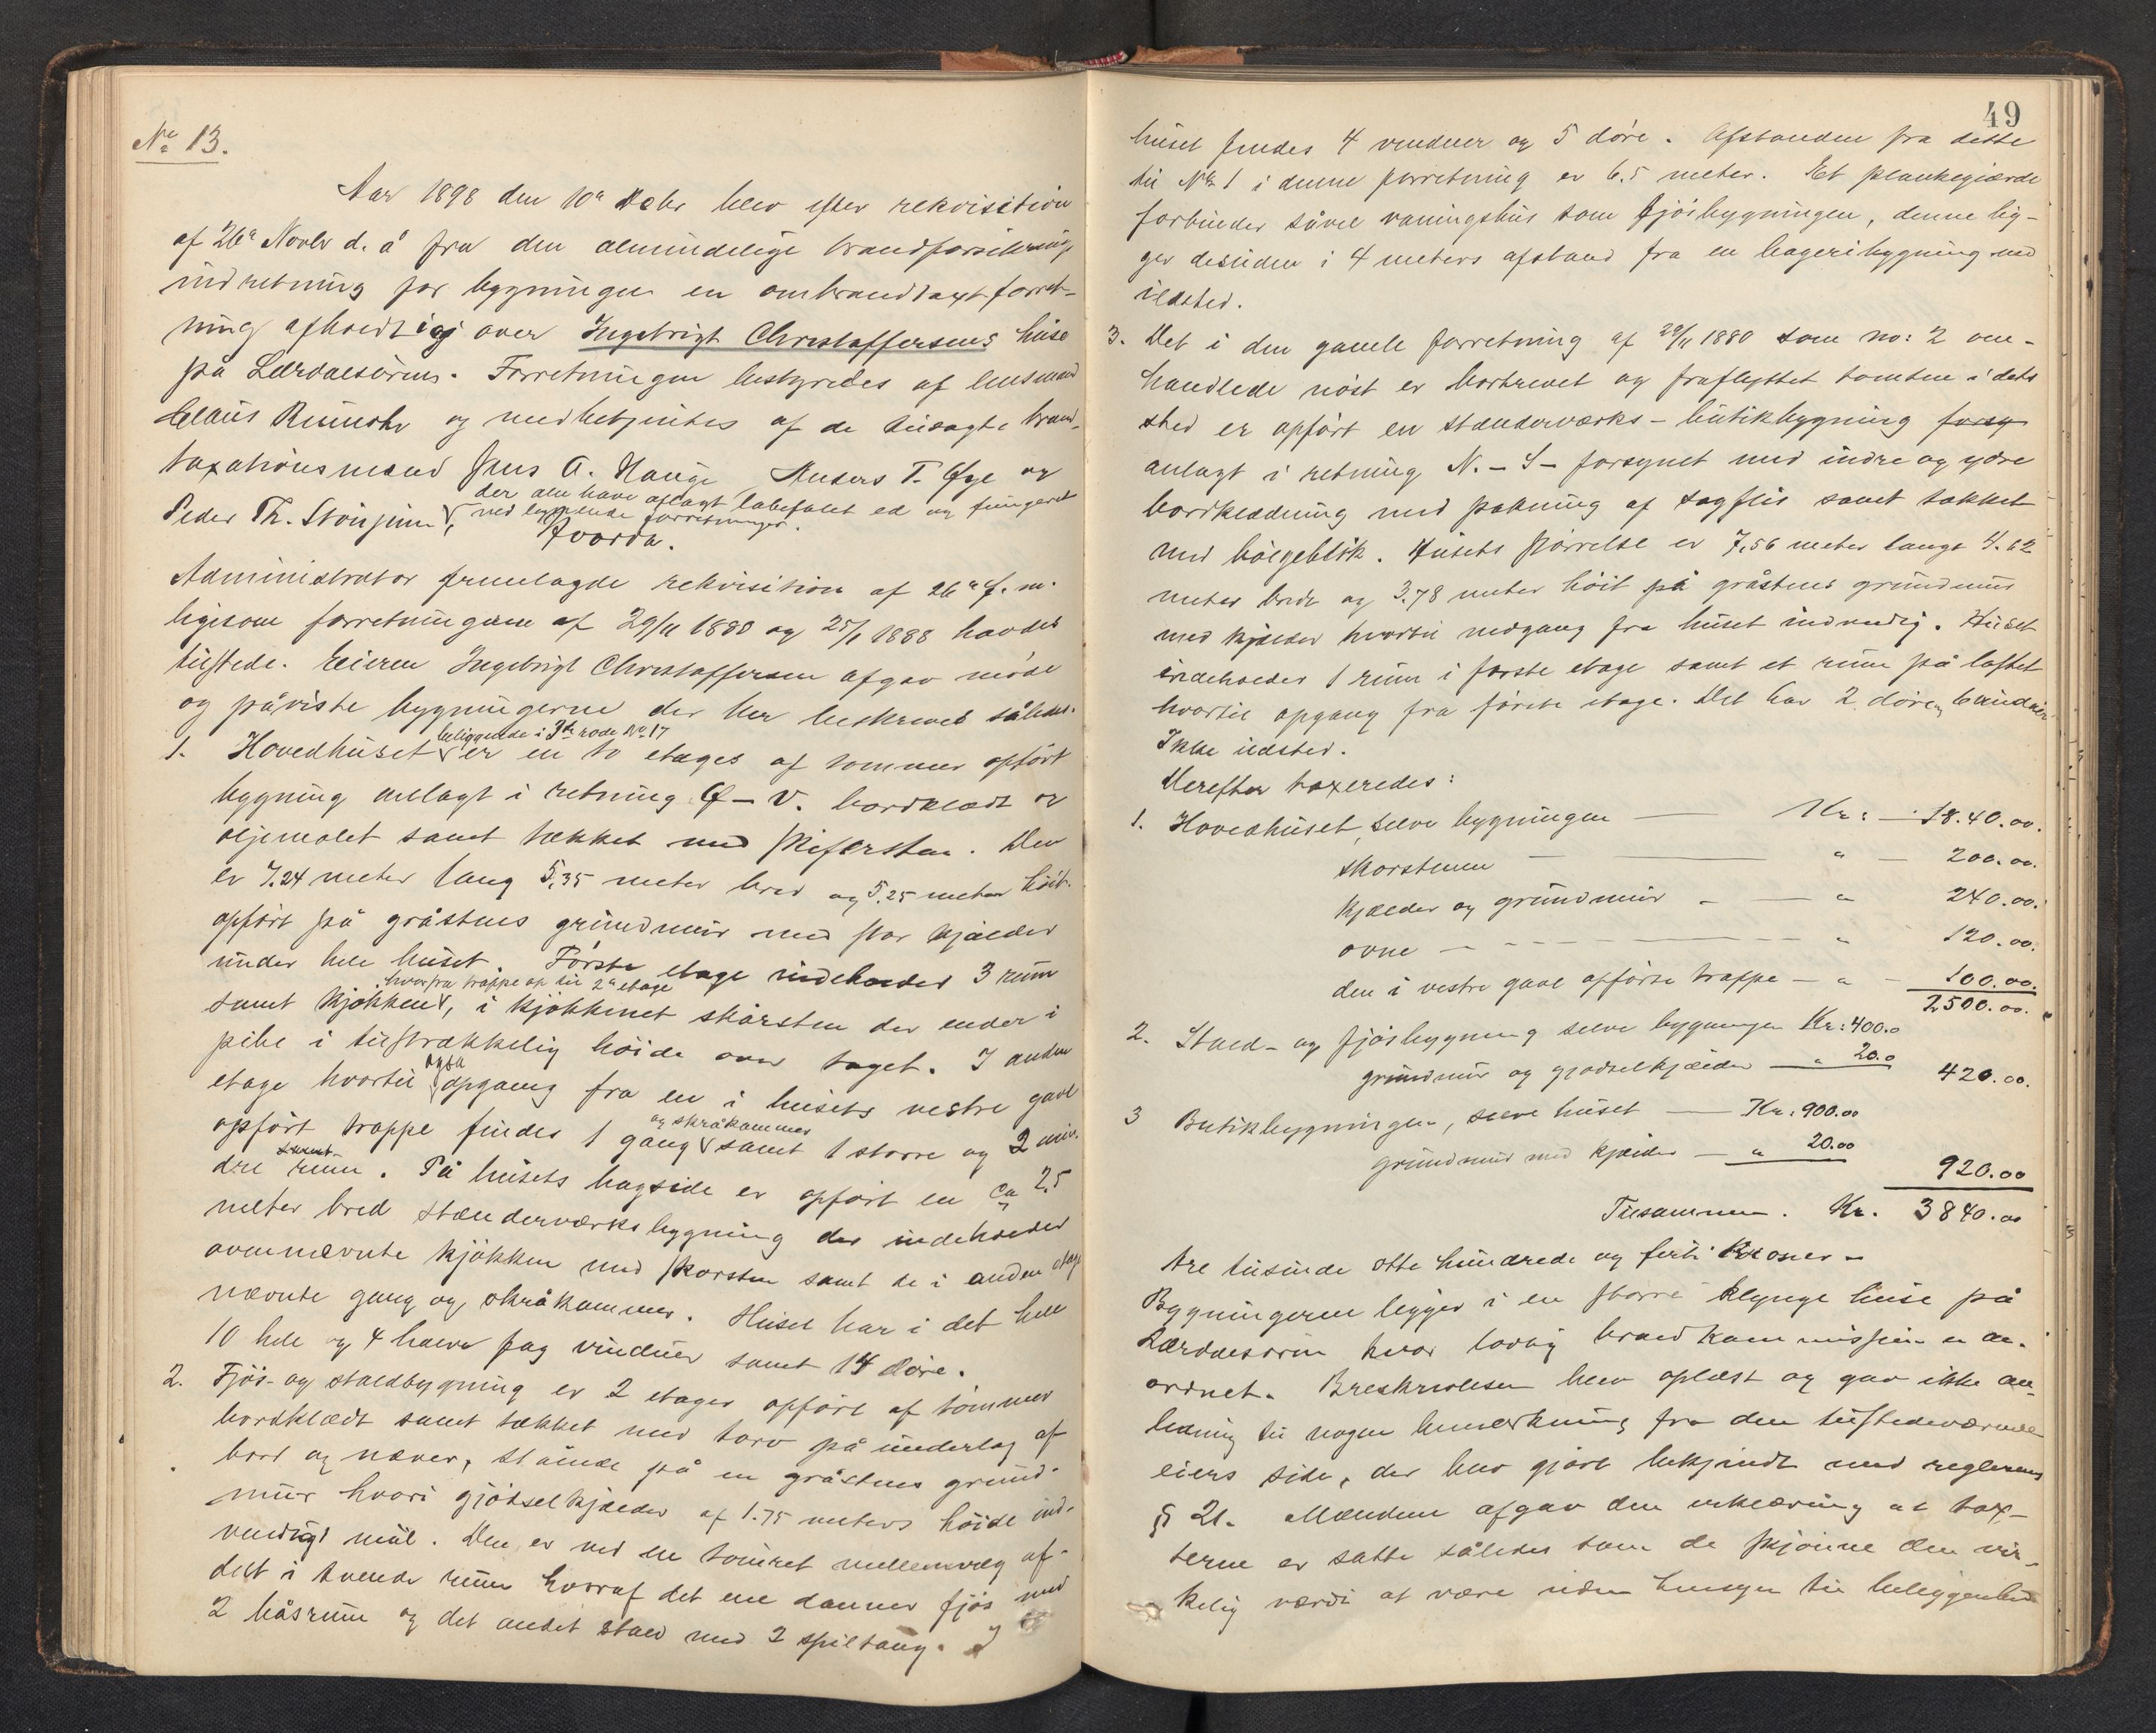 No 13.
Aar 1898 den 10de Decbr blev efter rekvisition
af 26de Novbr d. å fra den almindelige brandforsikrings
indretning for bygninger en ombrandtaxtforret-
ning afholdt over Ingebrigt Christoffersens huse
på Lærdalsøren. Forretningen bestyredes af lensmand
Claus Rumohr og medbetjentes af de tilsagte brand-
taxationsmænd Jens A. Hauge Anders T. Øye og
der alle have aflagt lovbefalet ed og fungeret
Peder Th. Stönjum, ved lignende forretninger.
Hvorda.
Administrator fremlagde rekvisition af 26de f. m.
ligesom forretningerne af 29/11 1880 og 25/1 1888 havdes
tilstede. Eieren Ingebrigt Christoffersen afgav møde
og påviste bygningerne der her beskreves således.
beliggende i 3de rode No 17
1. Hovedhuset er en to etages af tømmer opført
bygning anlagt i retning Ø – V. bordklædt og
oljemalet samt tækket med skifersten. Den
er 7.24 meter lang 5,35 meter bred og 5.25 meter høit.
opført på gråstens grundmur med stor kjælder
under hele huset. Første etage indeholder 3 rum
hvorfra trappe op til 2de etage
samt kjøkken, i kjøkkenet skorsten der ender i
pibe i tilstrækkelig høide over taget. I anden
også
etage hvortil opgang fra en i husets vestre gavl
og skråkammer
opført trappe findes 1 gang samt 1 større og 2 min-
dre rum. På husets bagside er opført en ca 2,5
meter bred stænderværksbygning der indeholder
ovennævnte kjøkken med skorsten samt de i anden etage
nævnte gang og skråkammer. Huset har i det hele
10 hele og 4 halve fag vinduer samt 14 døre.
2. Fjøs- og staldbygning er 2 etages opført af tømmer
bordklædt samt tækket med torv på underlag af
bord og næver, stående på en gråstens grund-
mur hvori gjødselkjælder af 1.75 meters høide ind-
vendigt mål. Den er ved en tømret mellemvæg af-
delt i tvende rum hvoraf det ene danner fjøs med
2 båsrum og det andet stald med 2 spiltoug. I
49
huset findes 4 vinduer og 5 døre. Afstanden fra dette
til No 1 i denne forretning er 6.5 meter. Et plankegjærde
forbinder såvel våningshus som fjøsbygningen, denne lig-
ger desuden i 4 meters afstand fra en bageribygning med
ildsted.
3. Det i den gamle forretning af 29/11 1880 som no: 2 om-
handlede nøst er bortrevet og fraflyttet tomten i dets
sted er opført en stænderværks-butikbygning forsy
anlagt i retning N. – S – forsynet med indre og ydre
bordklædning med pakning af sagflis samt tækket
med bølgeblik. Husets størrelse er 7,56 meter langt 4.62
meter bredt og 3.78 meter høit på gråstens grundmur
med kjælder hvortil nedgang fra huset indvendig. Huset
indeholder 1 rum i første etage samt et rum på loftet
hvortil opgang fra første etage. Det har 2 døre 6 vinduer
Ikke ildsted.
Derefter taxeredes:
1. Hovedhuset, selve bygningen — Kr: — 18.40.00.
skorstenen — — " — 200.00.
kjælder og grundmur — " 240.00.
ovne — — " 120.00.
den i vestre gavl opførte trappe — " — 100.00.
2500.00.
2. Stald- og fjøsbygning selve bygningen Kr: 400.0
grundmur og gjødselkjælder — " 20.0 420.00.
3 Butikbygningen, selve huset — Kr: 900.00
grundmur med kjælder — " 20.00
920.00
Tilsammen. Kr. 3840.00
tre tusinde otte hundrede og firti Kroner –
Bygningerne ligger i en større klynge huse på
Lærdalsøren hvor lovlig brandkommission er an-
ordnet. Beskrivelsen blev oplæst og gav ikke an-
ledning til nogen bemærkning fra den tilstedeværende
eiers side, der blev gjort bekjendt med reglernes
§ 21. Mændene afgav den erklæring at tax-
terne er satte således som de skjønne den vir-
kelig værdi at være uden hensyn til beliggenhed